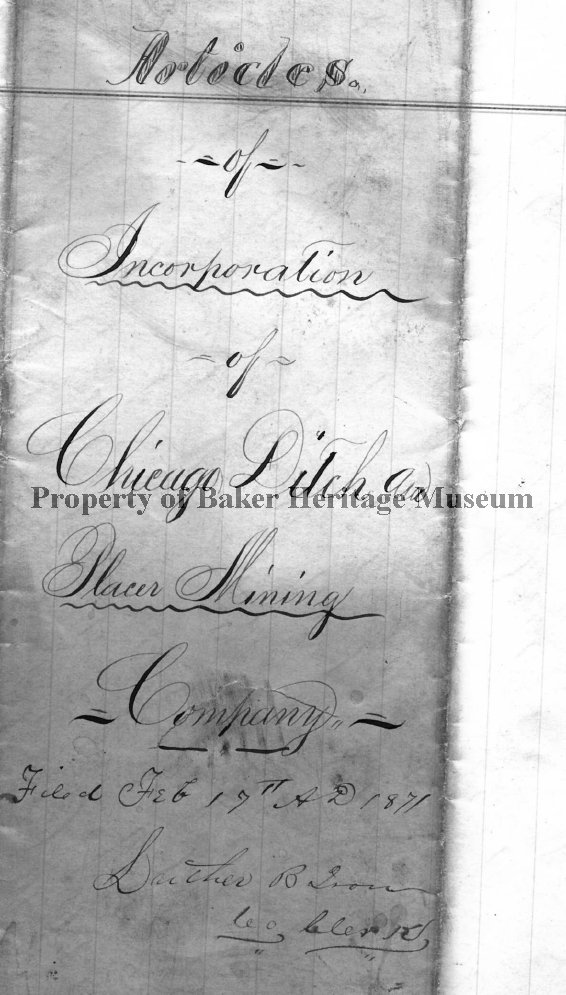 Articles.
- = of = -
Incorporation
- of -
Chicago Ditch and
Property of Baker Heritage Museum
Placer Mining
= Company =
Filed Feb 17th AD 1871
Luther B Ison
Co Clerk